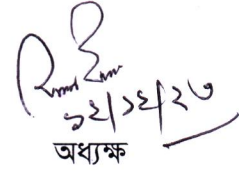 ১২/১২/২৩
অধ্যক্ষ